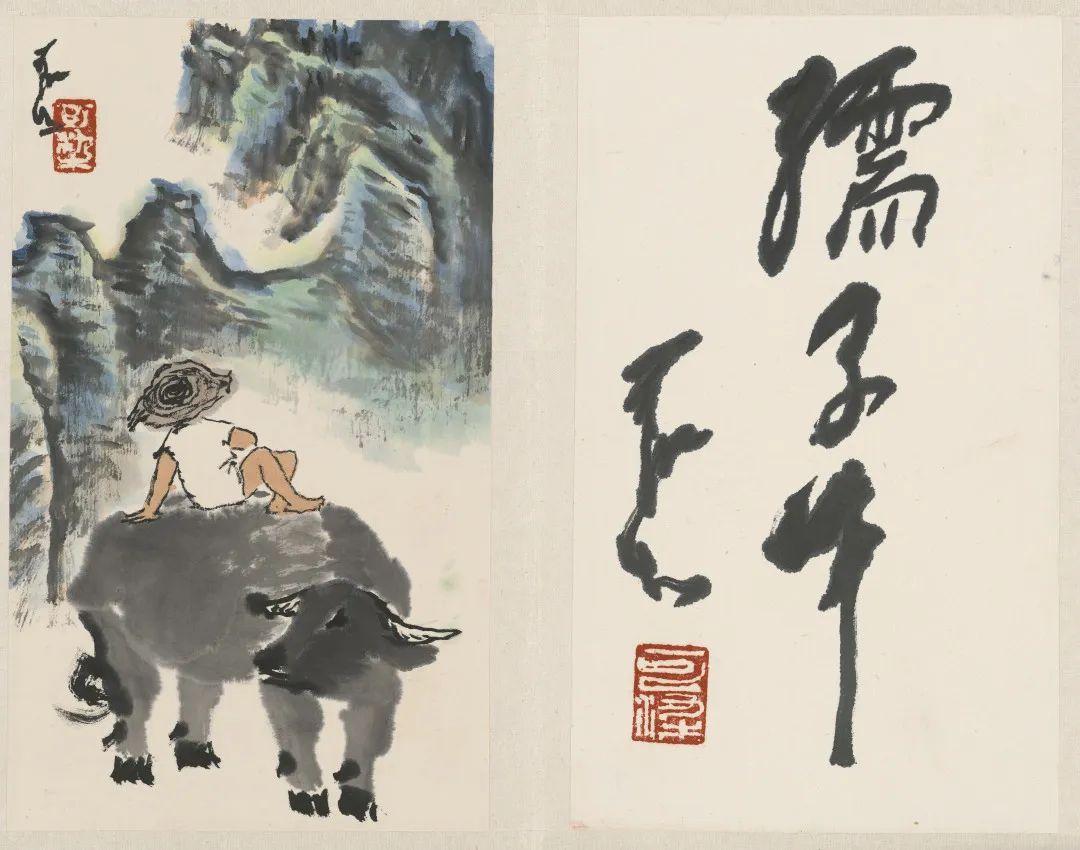 可染
可染
孺子牛
可染
可染